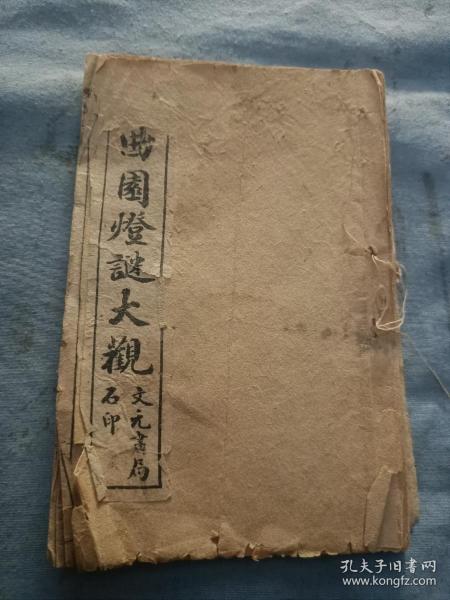 曲園燈謎大觀
文元書局
石印
孔夫子旧书网
www.kongfz.com